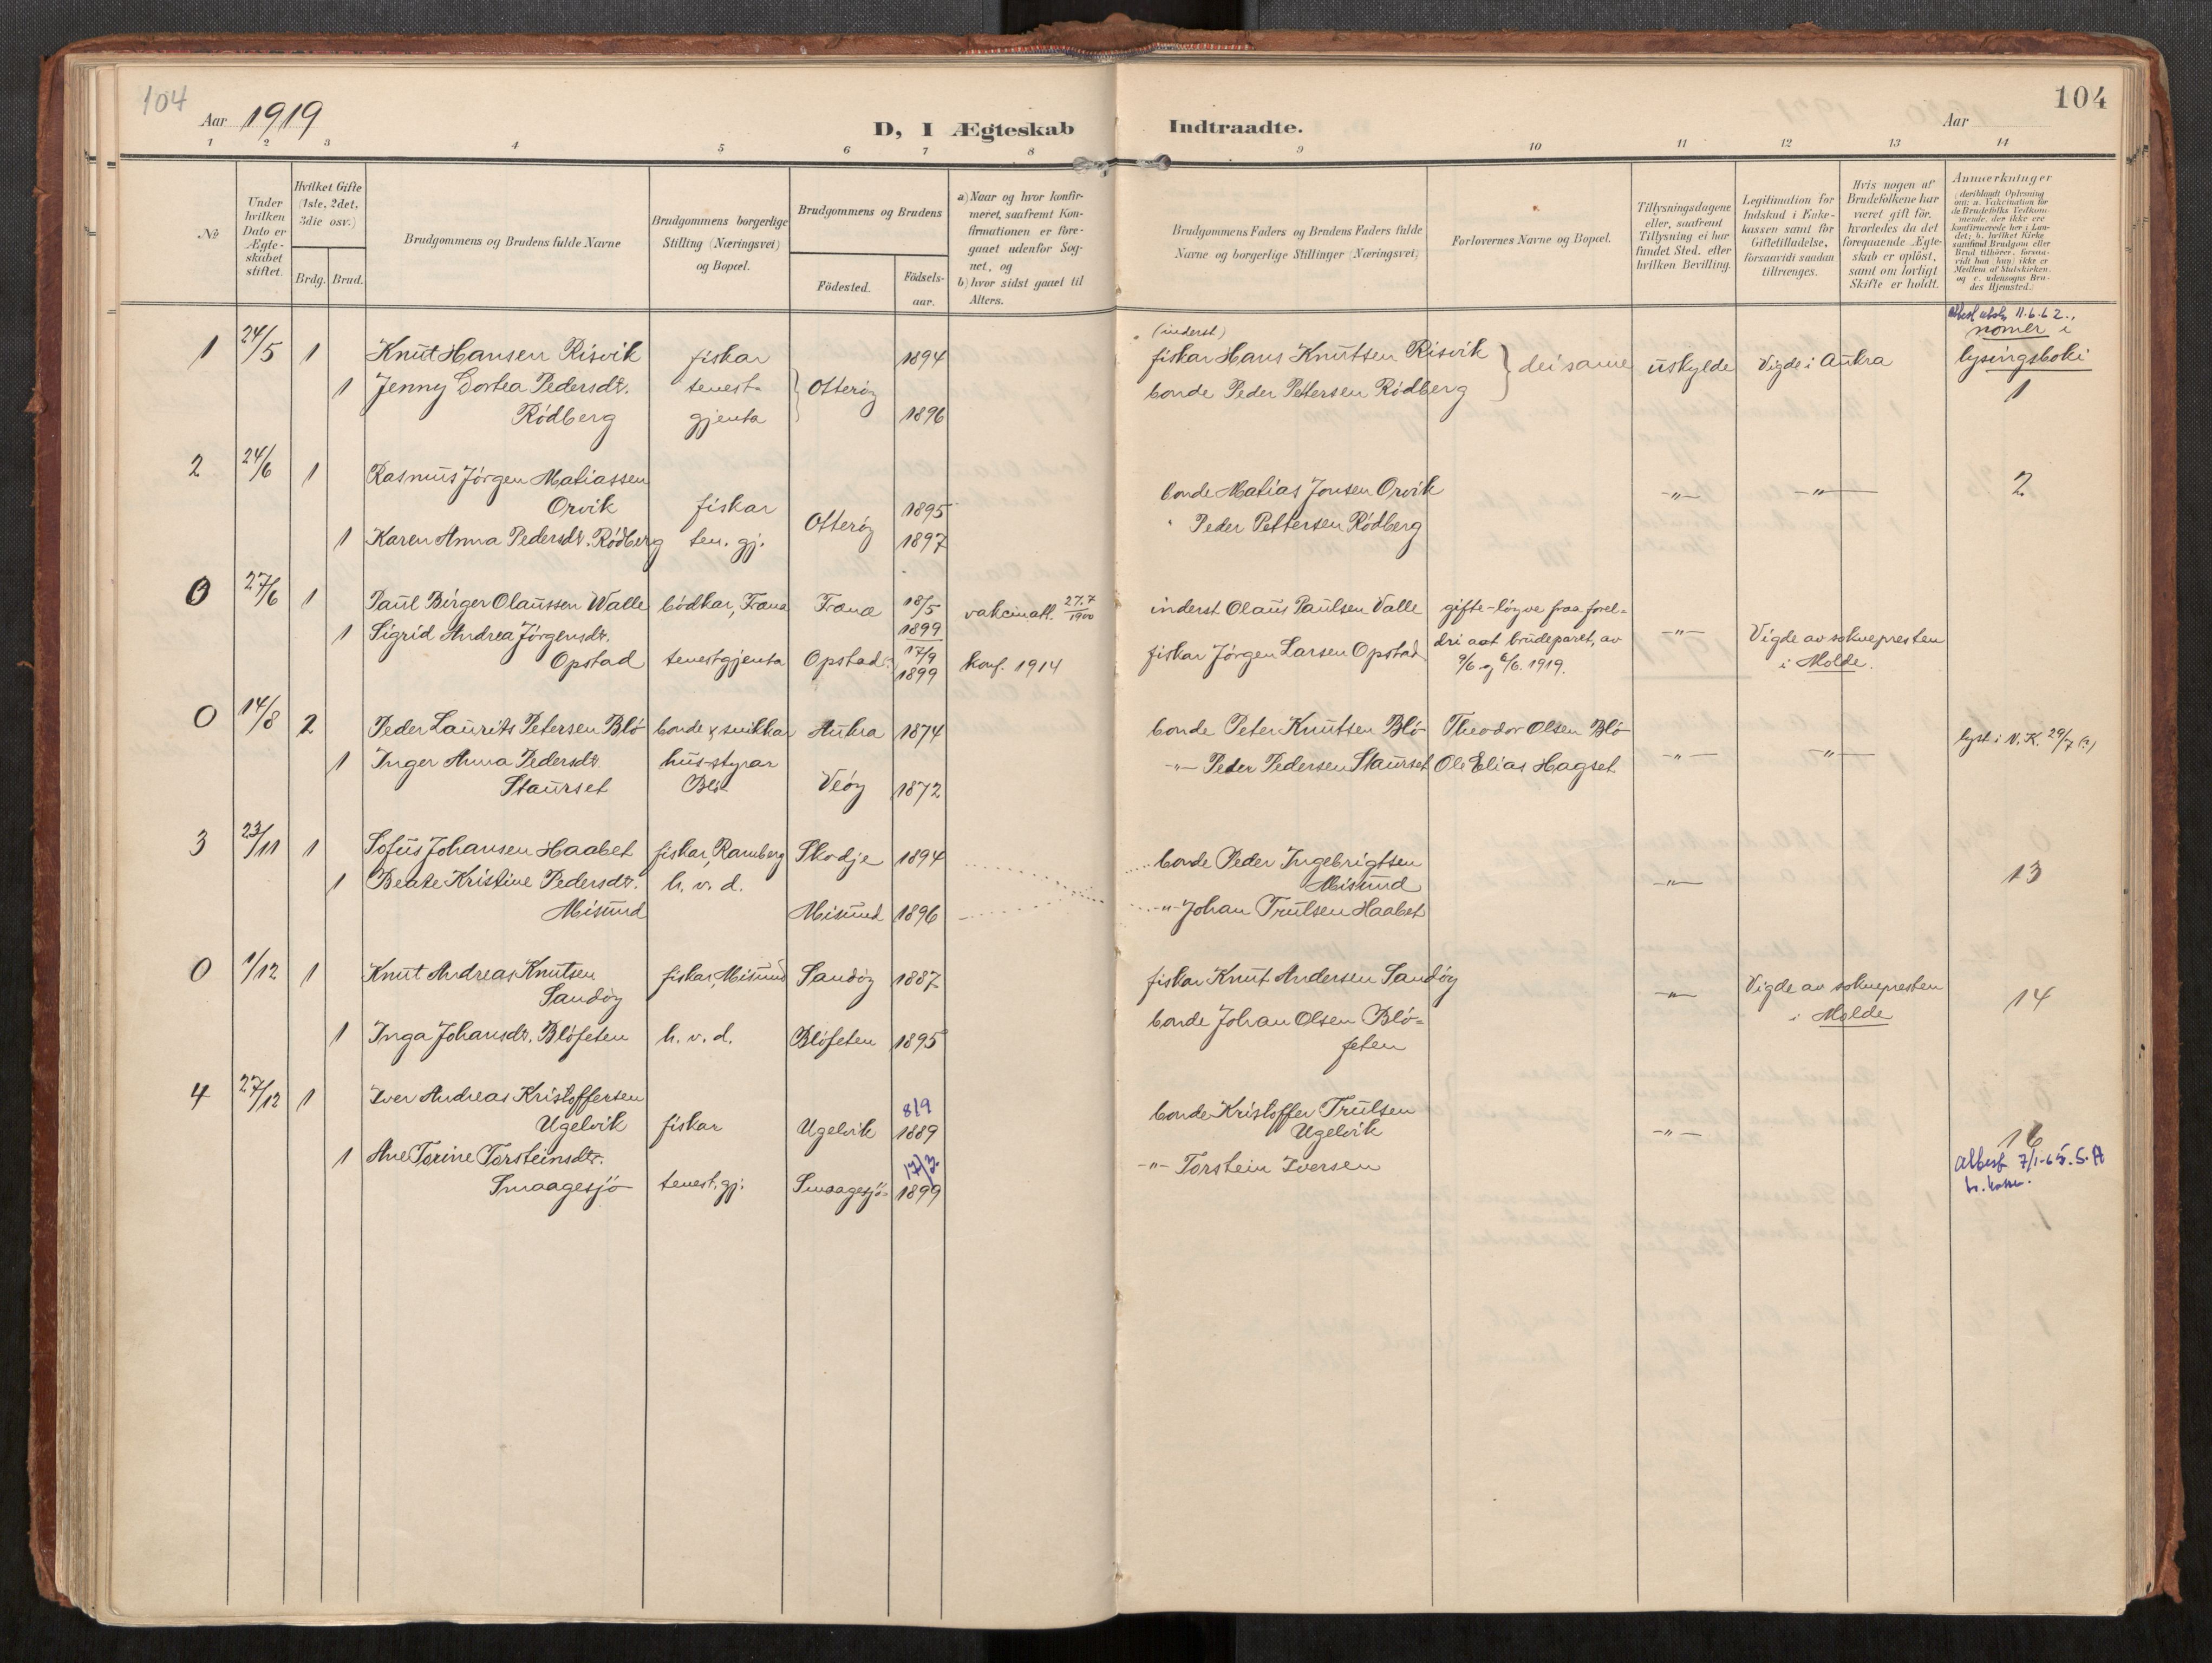 104
Aar 1919
D, I Ægteskab
Indtraadte.
Aar
104
1 2 3 4 5 6 7 8 9 10 11 12 13 14
№
Under hvilken Dato er Ægte-skabet stiftet.
Hvilket Gifte (1ste, 2det, 3die osv.)
Brdg. Brud.
Brudgommens og Brudens fulde Navne
Brudgommens borgerlige Stilling (Næringsvei) og Bopæl.
Brudgommens og Brudens
Födested.
Födsels-aar.
a) Naar og hvor konfirmeret, saafremt Konfirmationen er foregaaet udenfor Sognet, og
b) hvor sidst gaaet til Alters.
Brudgommens Faders og Brudens Faders fulde Navne og borgerlige Stillinger (Næringsvei)
Forlovernes Navne og Bopæl.
Tillysningsdagene eller, saafremt Tillysning ei har fundet Sted, efter hvilken Bevilling.
Legitimation for Indskud i Enkekassen samt for Giftetilladelse, forsaavidt saadan tiltrænges.
Hvis nogen af Brudefolkene har været gift för, hvorledes da det foregaaende Ægteskab er oplöst, samt om lovligt Skifte er holdt.
Anmærkninger
(deriblandt Oplysning om: a. Vakcination for de Brudefolks Vedkommende, der ikke ere konfirmerede her i Landet; b. hvilket Kirkesamfund Brudgom eller Brud tilhörer, forsaavidt han (hun) ikke er Medlem af Statskirken, og c. udensogns Brudes Hjemsted.)
11.6.62.,
nomer i
lysingsboki
1 24/5 1 Knut Hansen Risvik fiskar 1894
(inderst)
fiskar Hans Knutsen Risvik dei same uskylde Vigde i Aukra
1 Jenny Dortea Pedersdt. tenest- Otterøy
bonde Peder Pettersen Rødberg 1
Rødberg gjenta 1896
2 24/6 1 Rasmus Jørgen Matiassen
Orvik fiskar 1895 bonde Matias Jonsen Orvik -"- -"- 2
Otterøy " Peder Pettersen Rødberg
1 Karen Anna Pedersdt. Rødberg ten. gj. 1897
0 27/6 1 Paul Birger Olaussen Walle bödkar, Fræna Fræna 18/5 1899 vakcinatt. 27.7 1900 inderst Olaus Paulsen Valle gifte-løyve fraa forel-
1 Sigrid Andrea Jørgensdt. dri aat brudeparet, av -"- Vigde av soknepresten
Opstad tenestgjenta Opstad 17/9 1899 konf. 1914 fiskar Jørgen Larsen Opstad 9/6 og 6/6. 1919. i Molde.
0 14/8 2 Peder Laurits Petersen Blø bonde & snikkar Aukra 1874 bonde Peter Knutsen Blø Theodor Olsen Blø
lyst i N. K. 29/7 (?)
1 Inger Anna Pedersdt. hus-styrar -"- Peder Pedersen Staurset Ole Elias Hagset -"- -"-
Staurset Blø Veøy 1872
3 23/11 1 Sofus Johansen Haabet fiskar, Ramberg Skodje 1894 bonde Peder Ingebrigtsen
1 Beate Kristine Pedersdt. h. v. d. Misund -"- 13
Misund Misund 1896 -"- Johan Trulsen Haabet
0 1/12 1 Knut Andreas Knutsen fiskar, Misund Sandøy 1887 fiskar Knut Andersen Sandøy -"- Vigde av soknepresten
Sandøy i Molde 14
1 Inga Johansdt. Bløfeten h. v. d. Bløfeten 1895 bonde Johan Olsen Blø-
feten
4 27/12 1 Iver Andreas Kristoffersen 8/9
Ugelvik fiskar Ugelvik 1889 bonde Kristoffer Trulsen
Ugelvik -"-
1 Ane Torine Torsteinsdtr. 17/3. -"- Torstein Iversen
Smaagesjö tenest. gj. Smaagesjö 1899
attest 7/1-65. S. A
tr. kassen.